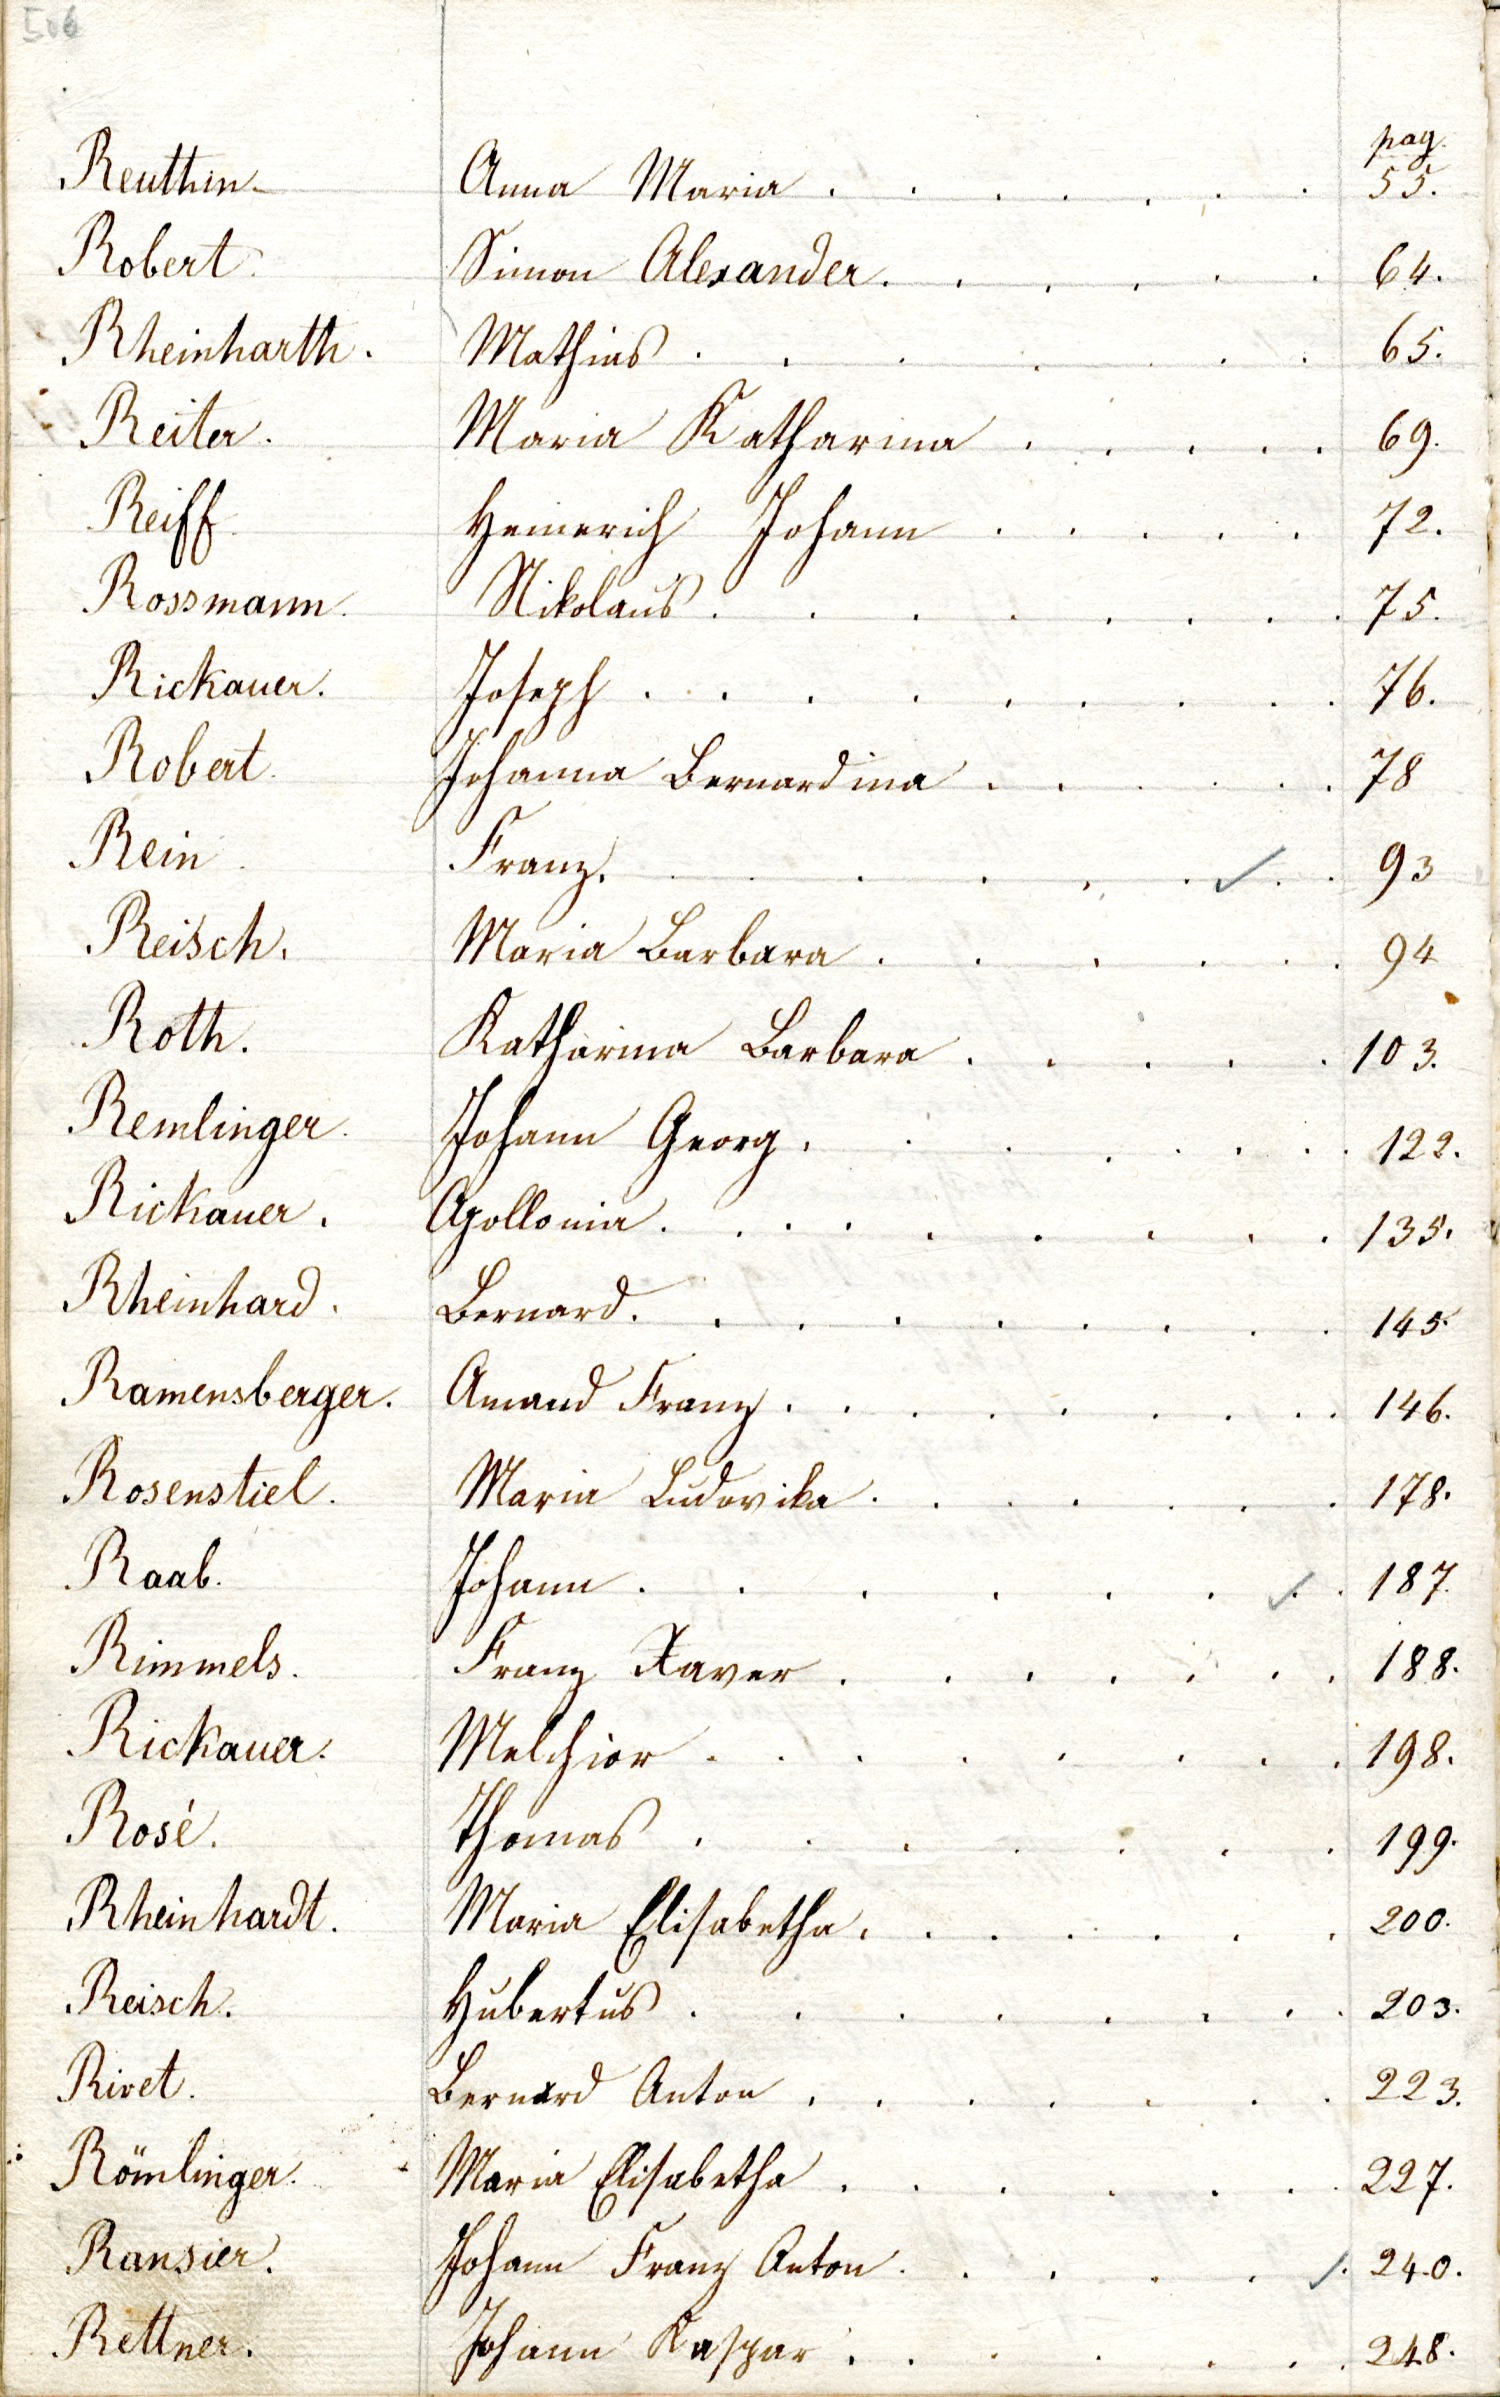 506
pag.
Reuthin. Anna Maria . . . . . . . 55.
Robert. Simon Alexander . . . . . . 64.
Rheinharth. Mathias . . . . . . . 65.
Reiter. Maria Katharina . . . . . 69.
Reiff. Heinerich Johann . . . . . 72.
Rossmann. Nikolaus . . . . . . . . 75.
Rickauer. Joseph . . . . . . . . . 76.
Robert. Johanna Bernardina . . . . . . 78
Rein. Franz . . . . . . ✓ . . 93
Reisch. Maria Barbara . . . . . . 94
Roth. Katharina Barbara . . . . . 103.
Remlinger. Johann Georg . . . . . . . . 122.
Rickauer. Apollonia . . . . . . . . . 135.
Rheinhard. Bernard . . . . . . . . . 145.
Ramensberger. Amand Franz . . . . . . . . . 146.
Rosenstiel. Maria Ludovika . . . . . . . 178.
Raab. Johann . . . . . . ✓ . . 187.
Rimmels. Franz Xaver . . . . . . . 188.
Rickauer. Melchior . . . . . . . . 198.
Rosé. Thomas . . . . . . . 199.
Rheinhardt. Maria Elisabetha . . . . . . . 200.
Reisch. Hubertus . . . . . . . . 203.
Rivet. Bernard Anton . . . . . . . 223.
Römlinger. Maria Elisabetha . . . . . . . 227.
Ransier. Johann Franz Anton . . . . . ✓ . 240.
Rettner. Johann Kaspar . . . . . . . 248.